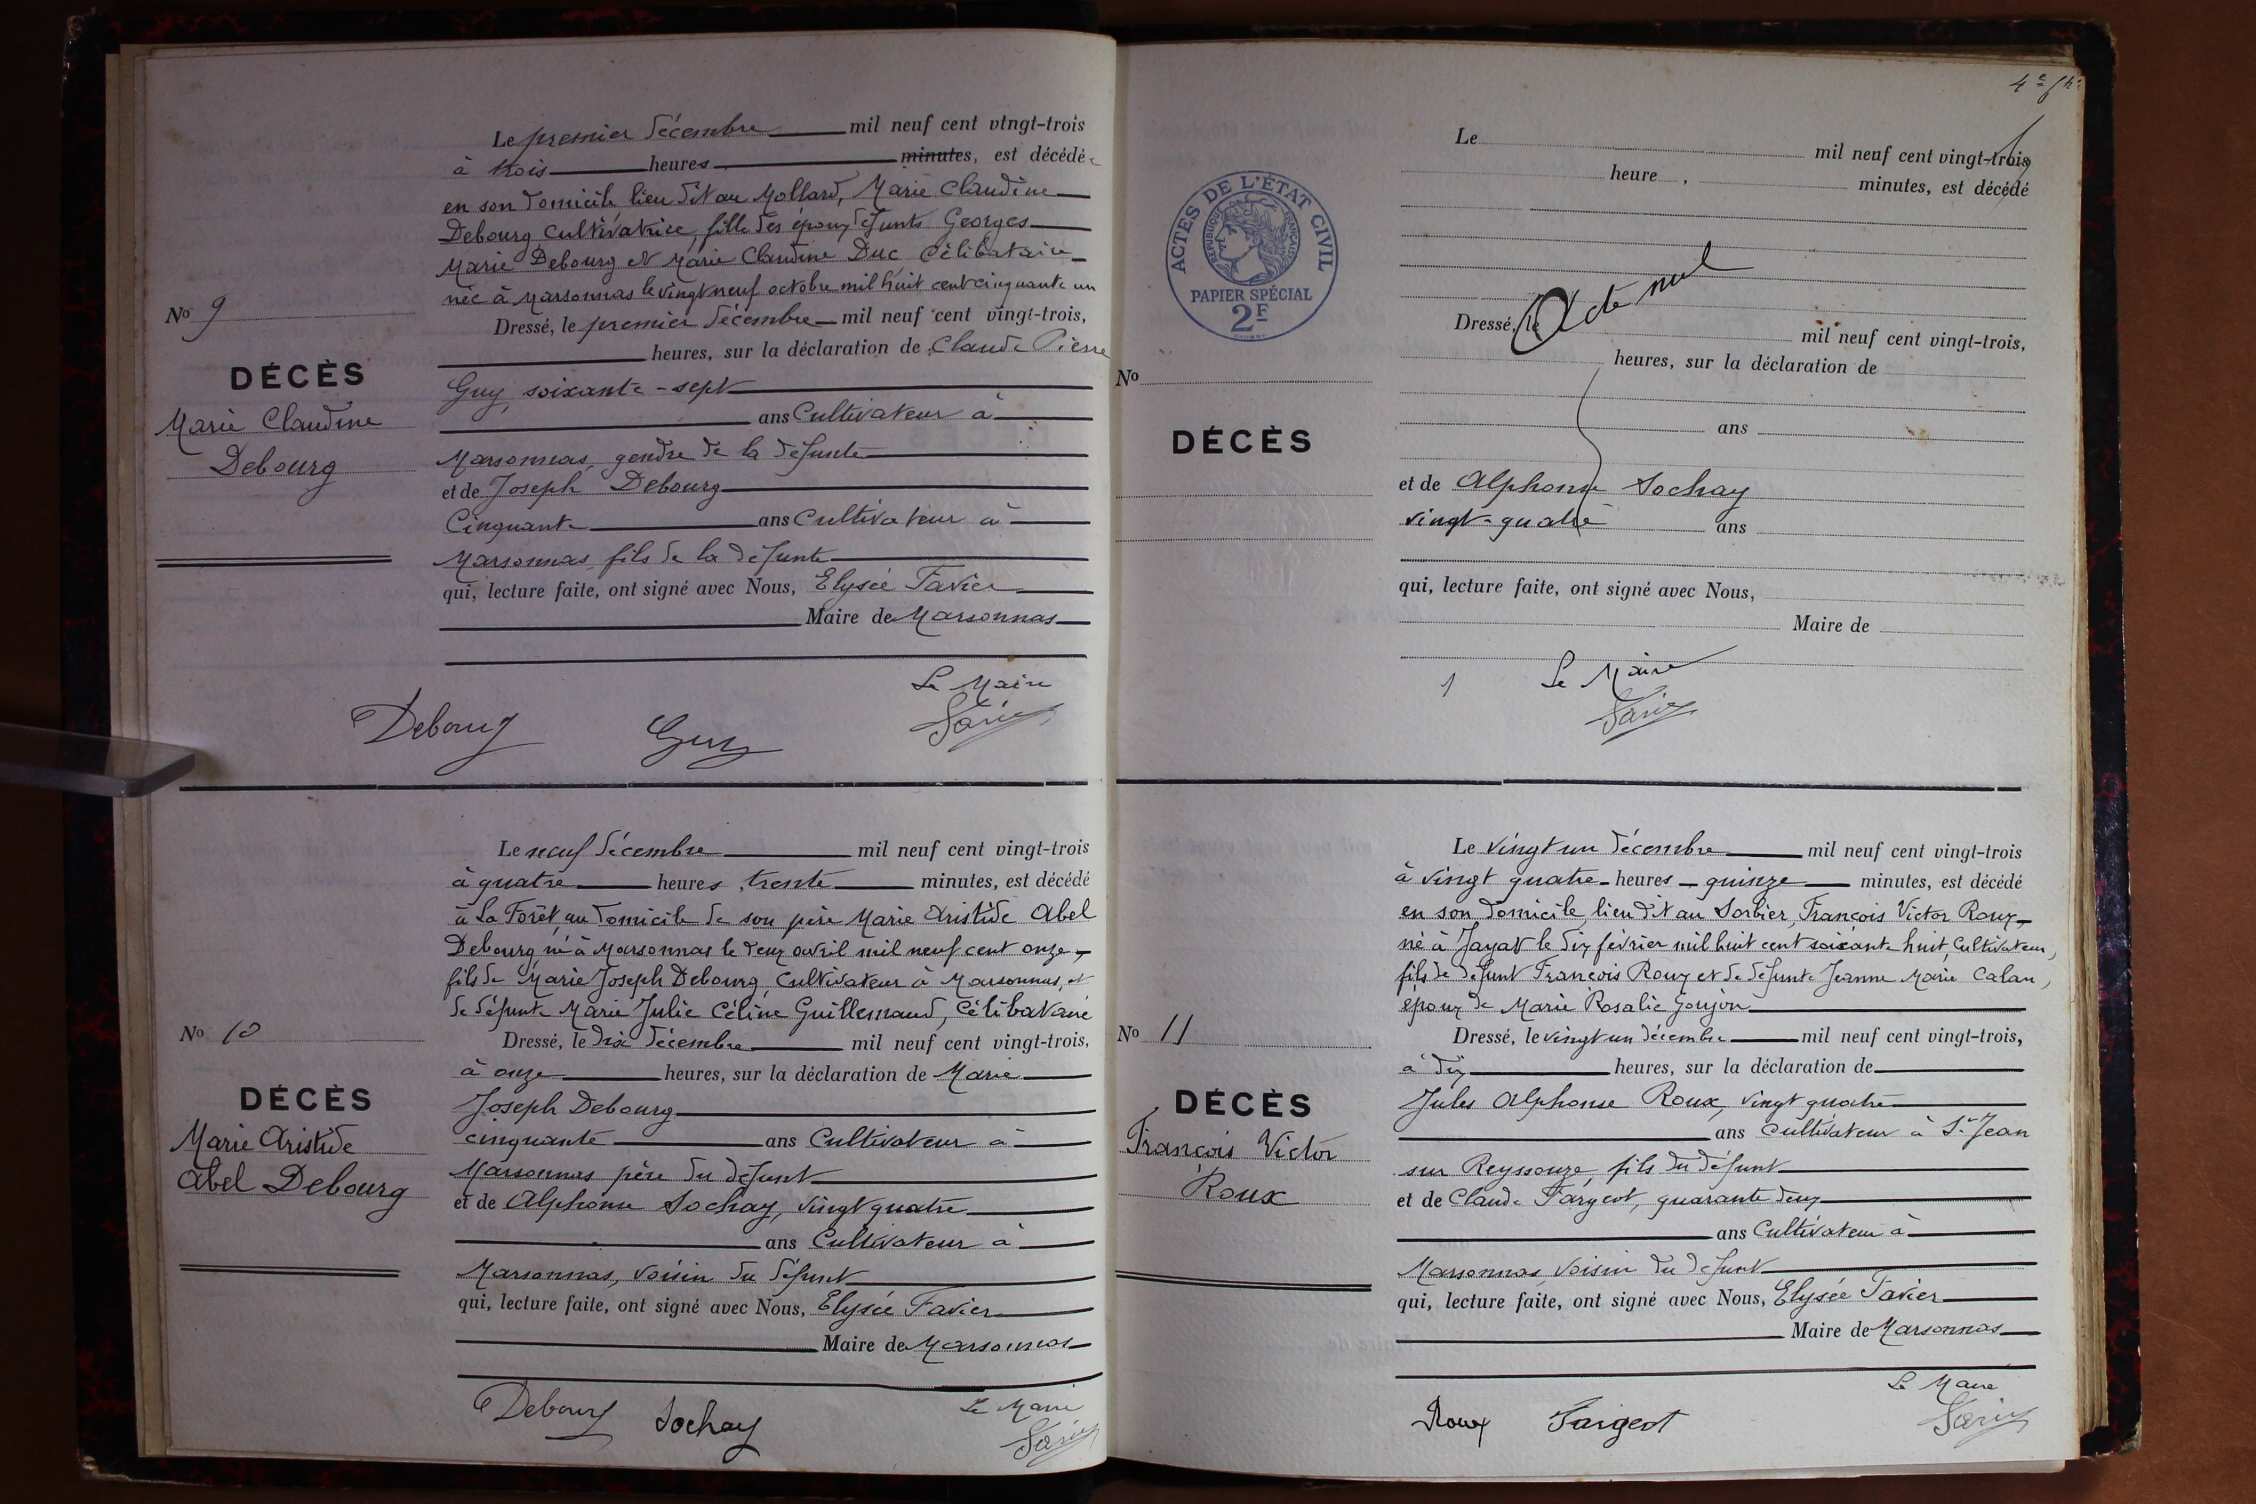 Le premier décembre mil neuf cent vingt-trois
à trois heures minutes, est décédée
en son domicile lieu dit au Mollard, Marie Claudine
Debourg cultivatrice, fille des époux défunts Georges
Marie Debourg et Marie Claudine Duc Célibataire
née à Marsonnas le vingt neuf octobre mil huit cent cinquante un
No 9
Dressé, le premier décembre mil neuf cent vingt-trois,
heures, sur la déclaration de Claude Pierre
DÉCÈS
Guy, soixante-sept
Marie Claudine
ans Cultivateur à
Debourg
Marsonnas, gendre de la défunte
et de Joseph Debourg
Cinquante ans Cultivateur à
Marsonnas fils de la défunte
qui, lecture faite, ont signé avec Nous, Elysée Favier
Maire de Marsonnas
Le Maire
Debourg Guy Favier
Le neuf décembre mil neuf cent vingt-trois
à quatre heures, trente minutes, est décédé
à La Forêt, au domicile de son père Marie Aristide Abel
Debourg né à Marsonnas le deux avril mil neuf cent onze
fils de Marie Joseph Debourg, Cultivateur à Marsonnas, et
de défunte Marie Julie Céline Guillemaud, Célibataire
No 10
Dressé, le dix décembre mil neuf cent vingt-trois,
à onze heures, sur la déclaration de Marie
DÉCÈS
Joseph Debourg
Marie Aristide
cinquante ans Cultivateur à
Abel Debourg
Marsonnas père du défunt
et de Alphonse Sochay, vingt quatre
ans Cultivateur à
Marsonnas, voisin du défunt
qui, lecture faite, ont signé avec Nous, Elysée Favier
Maire de Marsonnas
Le Maire
Debourg Sochay Favier
4e
Le mil neuf cent vingt-trois
heure , minutes, est décédé
ACTES DE L'ÉTAT CIVIL
RÉPUBLIQUE FRANÇAISE
PAPIER SPÉCIAL
2F
Acte nul
Dressé, le mil neuf cent vingt-trois,
heures, sur la déclaration de
No
DÉCÈS
ans
et de Alphonse Sochay
vingt-quatre ans
qui, lecture faite, ont signé avec Nous,
Maire de
1 Le Maire
Favier
Le vingt un décembre mil neuf cent vingt-trois
à vingt quatre heures quinze minutes, est décédé
en son domicile, lieu dit au Sorbier, François Victor Roux
né à Jayat le dix février mil huit cent soixante huit, Cultivateur,
fils de défunt François Roux et de défunte Jeanne Marie Calan,
époux de Marie Rosalie Goujon
No 11
Dressé, le vingt un décembre mil neuf cent vingt-trois,
à dix heures, sur la déclaration de
DÉCÈS
Jules Alphonse Roux, vingt quatre
François Victor
ans Cultivateur à St Jean
Roux
sur Reyssouze, fils du défunt
et de Claude Fargeot, quarante deux
ans Cultivateur à
Marsonnas, voisin du défunt
qui, lecture faite, ont signé avec Nous, Elysée Favier
Maire de Marsonnas
Le Maire
Roux Fargeot Favier